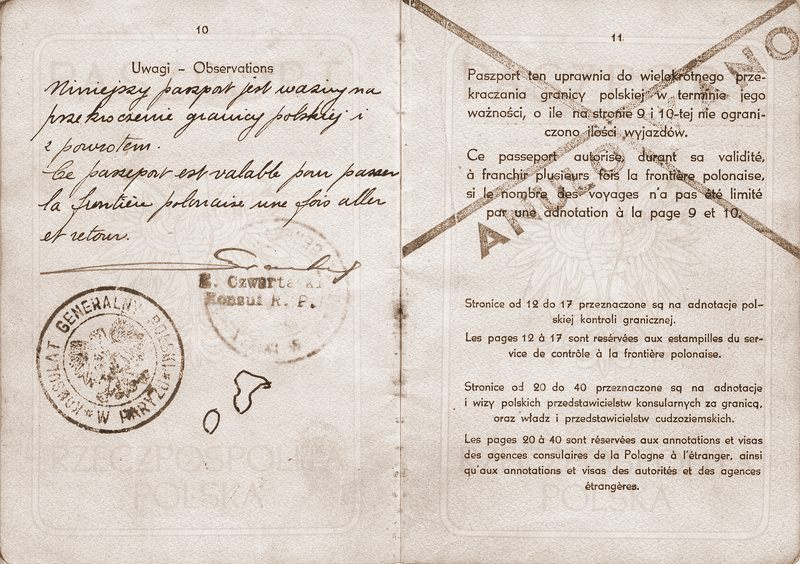 10
Uwagi – Observations
Niniejszy paszport jest ważny na
przekroczenie granicy polskiej i
z powrotem.
Ce passeport est valable pour passer
la frontière polonaise une fois aller
et retour.
E. Czwartacki
Konsul R. P.
KONSULAT GENERALNY POLSKI
W PARYŻU
RZECZPOSPOLITA
POLSKA
11
ANULOWANO
Paszport ten uprawnia do wielokrotnego prze-
kraczania granicy polskiej w terminie jego
ważności, o ile na stronie 9 i 10-tej nie ograni-
czono ilości wyjazdów.
Ce passeport autorise, durant sa validité,
à franchir plusieurs fois la frontière polonaise,
si le nombre des voyages n'a pas été limité
par une adnotation à la page 9 et 10.
Stronice od 12 do 17 przeznaczone są na adnotacje pol-
skiej kontroli granicznej.
Les pages 12 à 17 sont resérvées aux estampilles du ser-
vice de contrôle à la frontière polonaise.
Stronice od 20 do 40 przeznaczone są na adnotacje
i wizy polskich przedstawicielstw konsularnych za granicą,
oraz władz i przedstawicielstw cudzoziemskich.
Les pages 20 à 40 sont réservées aux annotations et visas
des agences consulaires de la Pologne à l'étranger, ainsi
qu'aux annotations et visas des autorités et des agences
étrangères.
POLSKA